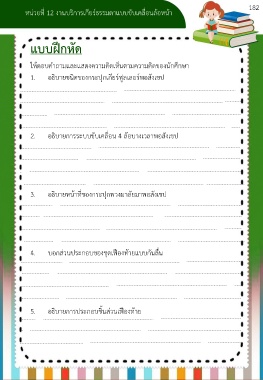 หน่วยที่ 12 งานบริการเกียร์ธรรมดาแบบขับเคลื่อนล้อหน้า
182
แบบฝึกหัด
ให้ตอบคำถามและแสดงความคิดเห็นตามความคิดของนักศึกษา
1. อธิบายชนิดของกระปุกเกียร์ทุ่นแรงพอสังเขป
2. อธิบายการระบบขับเคลื่อน 4 ล้อบางเวลาพอสังเขป
3. อธิบายหน้าที่ของกระปุกพวงมาลัยมาพอสังเขป
4. บอกส่วนประกอบของชุดเฟืองท้ายแบบกันลื่น
5. อธิบายการประกอบชิ้นส่วนเฟืองท้าย